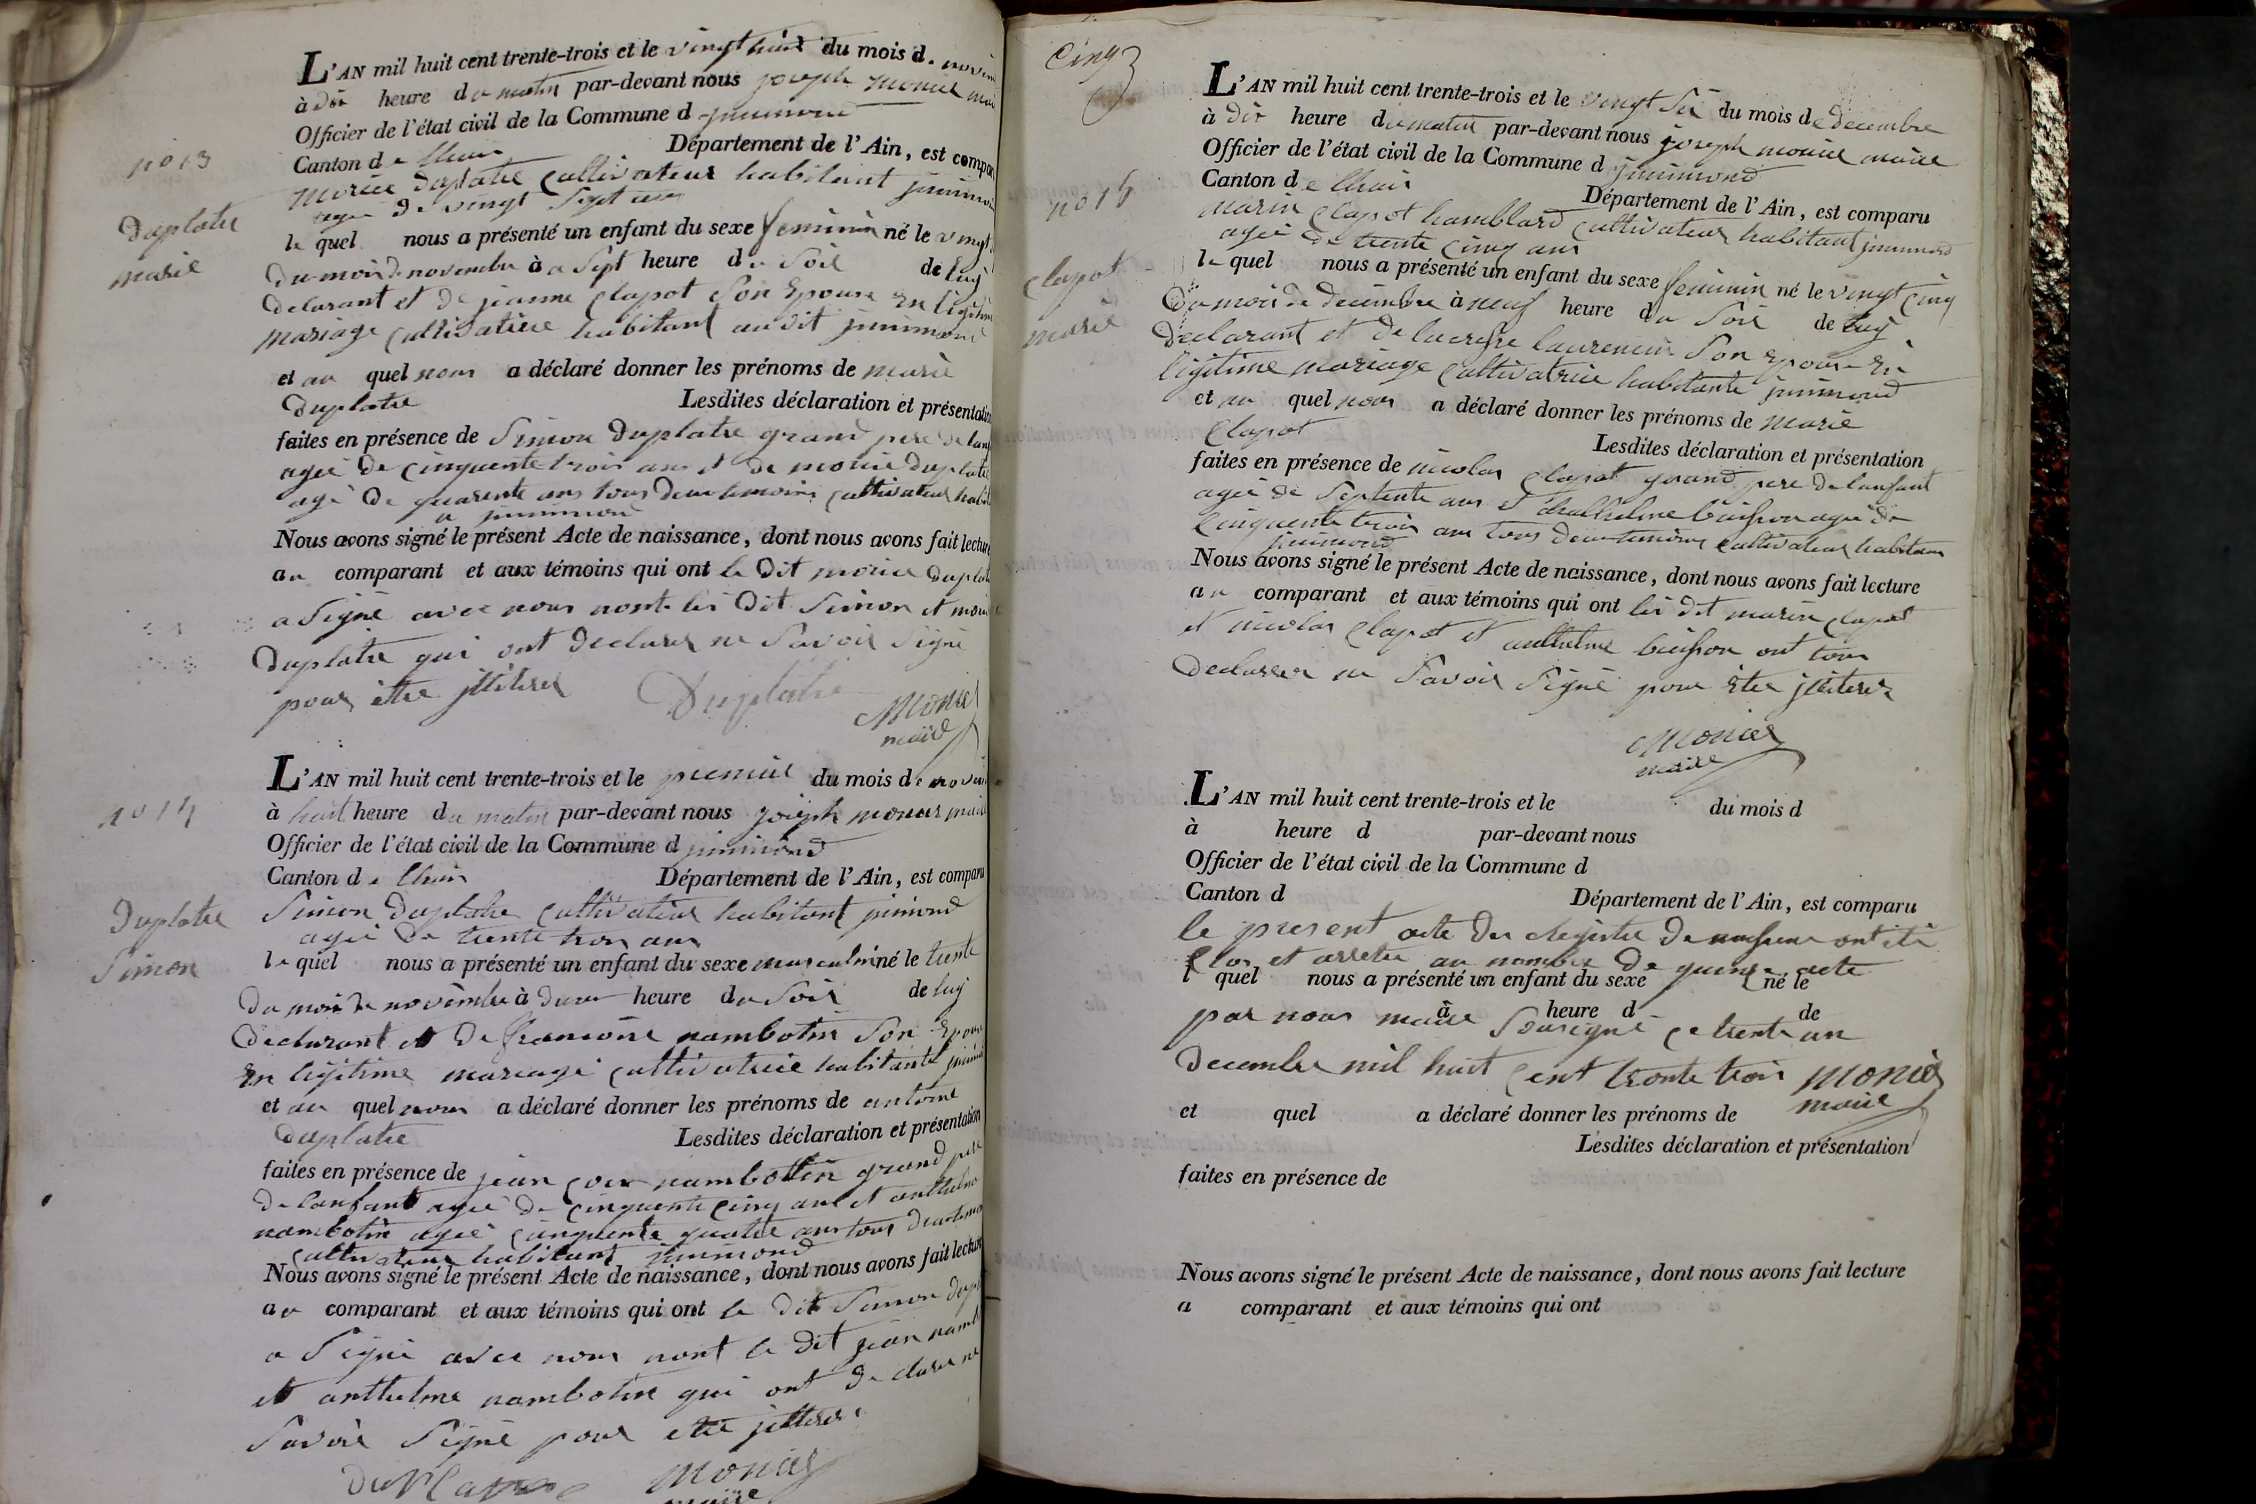 L'AN mil huit cent trente-trois et le vingt huit du mois d. novem
à dix heure du matin par-devant nous joseph monier mair
Officier de l'état civil de la Commune d jnnimond
Canton de lhuis Département de l'Ain, est compar
n° 13
morice duplatre Cultivateur habitant jnnimon
agée de vingt Sept ans
Duplatre
marie
le quel nous a présenté un enfant du sexe feminin né le vingt
du mois de novembre à a Sept heure du Soir de luy
declarant et de jeanne Clapot Son Epouse En legitime
mariage Cultivatrice habitant au dit jnnimond
et au quel nous a déclaré donner les prénoms de marie
duplatre Lesdites déclaration et présentation
faites en présence de Simon Duplatre grand pere de lanf
agée de Cinquente trois ans et de morice Duplatre
agé de quarente ans tous deux temoins Cultivateur habit
a jnnimond
Nous avons signé le présent Acte de naissance, dont nous avons fait lecture
au comparant et aux témoins qui ont le Dit morice Duplat
a Signé avec nous nont les Dit Simon et moric
Duplatre qui ont Declarer ne Savoir Signé
pour être
Duplatre
Monier
maire
L'AN mil huit cent trente-trois et le premier du mois de novem
à huit heure du matin par-devant nous joseph monier maire
n° 14
Officier de l'état civil de la Commune d jnnimond
Canton de lhuis Département de l'Ain, est comparu
Duplatre
Simon
Simon Duplatre Cultivateur habitant jnnimond
agée de trente trois ans
le quel nous a présenté un enfant du sexe masculin né le trente
du mois de novembre à deux heure du Soir de luy
Declarant et De francoise nambotin Son Epouse
En legitime mariage Cultivatrice habitante jnnim
et au quel nous a déclaré donner les prénoms de antoine
Duplatre Lesdites déclaration et présentation
faites en présence de jean nambottin grand pere
De lanfant agée de Cinquente Cinq ans et anthelme
nambotin agée Cinquente quatre ans tous deux temoi
Cultivateur habitant jnnimond
Nous avons signé le présent Acte de naissance, dont nous avons fait lecture
au comparant et aux témoins qui ont le Dit Simon dupl
a Signé avec nous nont le dit jean namb
et anthelme nambotin qui ont Declarer ne
Savoir Signé pour etre
Duplatre Monier
maire
Cinq
L'AN mil huit cent trente-trois et le vingt Six du mois de decembre
à dix heure du matin par-devant nous joseph monier maire
Officier de l'état civil de la Commune d jnnimond
Canton de lhuis Département de l'Ain, est comparu
n° 15
marin Clapot hamblard Cultivateur habitant jnnimond
agée de trente Cinq ans
Clapot
marie
le quel nous a présenté un enfant du sexe feminin né le vingt Cinq
Du mois de decembre à neuf heure du Soir de luy
Declarant et de lucresse laurencin Son Epouse En
legitime mariage Cultivatrice habitante jnnimond
et au quel nous a déclaré donner les prénoms de marie
Clapot Lesdites déclaration et présentation
faites en présence de nicolas Clapot grand pere de lanfant
agée de Septente ans et danthelme buisson agée de
Cinquente trois ans tous deux temoins Cultivateur habitan
jnnimond
Nous avons signé le présent Acte de naissance, dont nous avons fait lecture
au comparant et aux témoins qui ont les dit marin Clapot
et nicolas Clapot et anthelme buisson ont tous
declarer ne Savoir Signé pour Etre
Monier
maire
L'AN mil huit cent trente-trois et le du mois d
à heure d par-devant nous
Officier de l'état civil de la Commune d
Canton d Département de l'Ain, est comparu
le present acte des Registre de naissence ont été
Clos et arretee au nombre de quinze acte
l quel nous a présenté un enfant du sexe né le
à heure d de
par nous maire Sousigné ce trente un
decembre mil huit Cent trente trois Monier
maire
et quel a déclaré donner les prénoms de
Lesdites déclaration et présentation
faites en présence de
Nous avons signé le présent Acte de naissance, dont nous avons fait lecture
a comparant et aux témoins qui ont